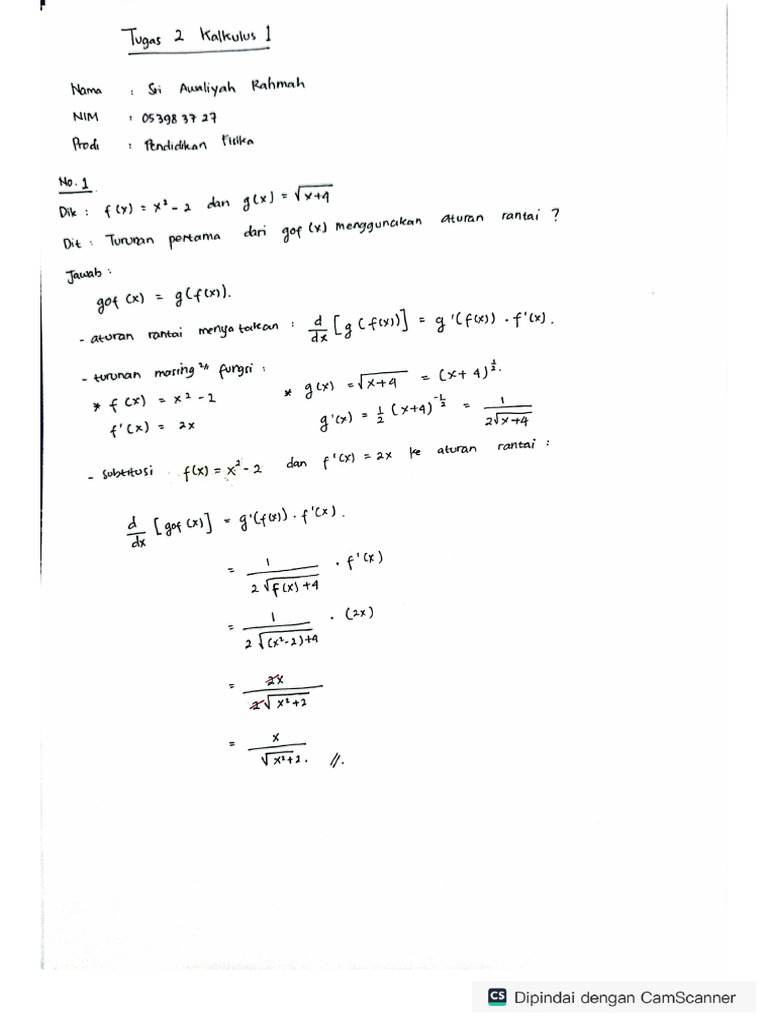 Tugas 2 Kalkulus 1
Nama : Sri Auualiyah Rahmah
NIM : 05398 37 27
Prodi : Pendidikan Fisika
No. 1
Dik : f(x) = x² - 2 dan g(x) = √(x+4)
Dit : Turunan pertama dari gof (x) menggunakan aturan rantai ?
Jawab :
gof (x) = g(f(x)).
- aturan rantai menyatakan : d/dx [g(f(x))] = g'(f(x)) . f'(x).
- turunan masing ²/n fungsi :
* f(x) = x² - 2 * g(x) = √(x+4) = (x+4)^½.
f'(x) = 2x g'(x) = ½ (x+4)^-½ = 1/(2√(x+4))
- substitusi f(x) = x² - 2 dan f'(x) = 2x ke aturan rantai :
d/dx [gof (x)] = g'(f(x)) . f'(x).
= 1/(2√(f(x)+4)) . f'(x)
= 1/(2√((x²-2)+4)) . (2x)
= 2x/(2√(x²+2))
= x/√(x²+2). //.
CS Dipindai dengan CamScanner